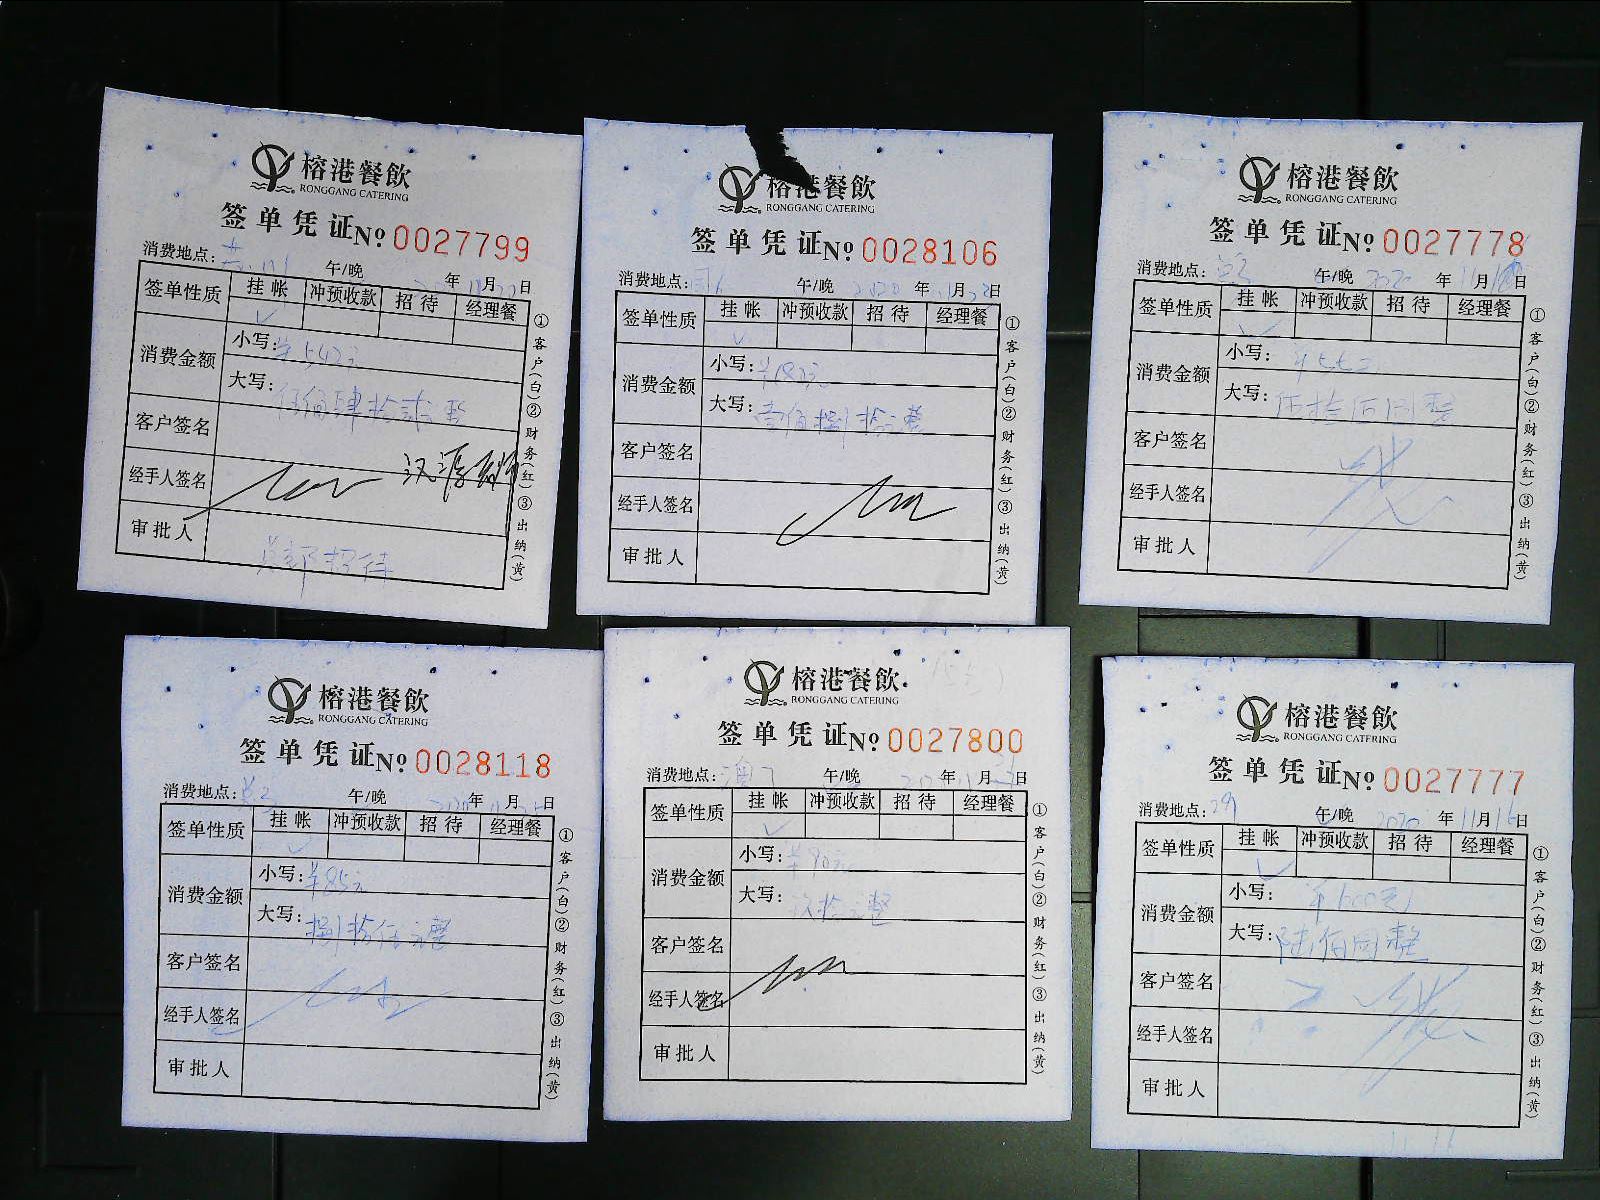 榕港餐飲
RONGGANG CATERING
签单凭证№ 0027799
消费地点: 午/晚 年 11月22日
签单性质 挂帐 冲预收款 招待 经理餐
消费金额 小写: ¥542元
大写: 伍佰肆拾贰元整
客户签名
经手人签名
审批人
①客户(白)②财务(红)③出纳(黄)
榕港餐飲
RONGGANG CATERING
签单凭证№ 0028106
消费地点: 午/晚 2020年11月22日
签单性质 挂帐 冲预收款 招待 经理餐
消费金额 小写:
大写: 壹佰捌拾元整
客户签名
经手人签名
审批人
①客户(白)②财务(红)③出纳(黄)
榕港餐飲
RONGGANG CATERING
签单凭证№ 0027778
消费地点: 午/晚 2020年11月 日
签单性质 挂帐 冲预收款 招待 经理餐
消费金额 小写:
大写:
客户签名
经手人签名
审批人
①客户(白)②财务(红)③出纳(黄)
榕港餐飲
RONGGANG CATERING
签单凭证№ 0028118
消费地点: 午/晚 年 月 日
签单性质 挂帐 冲预收款 招待 经理餐
消费金额 小写: ¥85元
大写: 捌拾伍元整
客户签名
经手人签名
审批人
①客户(白)②财务(红)③出纳(黄)
榕港餐飲
RONGGANG CATERING
签单凭证№ 0027800
消费地点: 午/晚 年11月 日
签单性质 挂帐 冲预收款 招待 经理餐
消费金额 小写: ¥90元
大写: 玖拾元整
客户签名
经手人签名
审批人
①客户(白)②财务(红)③出纳(黄)
榕港餐飲
RONGGANG CATERING
签单凭证№ 0027777
消费地点: 午/晚 2020年11月16日
签单性质 挂帐 冲预收款 招待 经理餐
消费金额 小写: ¥600元
大写: 陆佰圆整
客户签名
经手人签名
审批人
①客户(白)②财务(红)③出纳(黄)
11.16